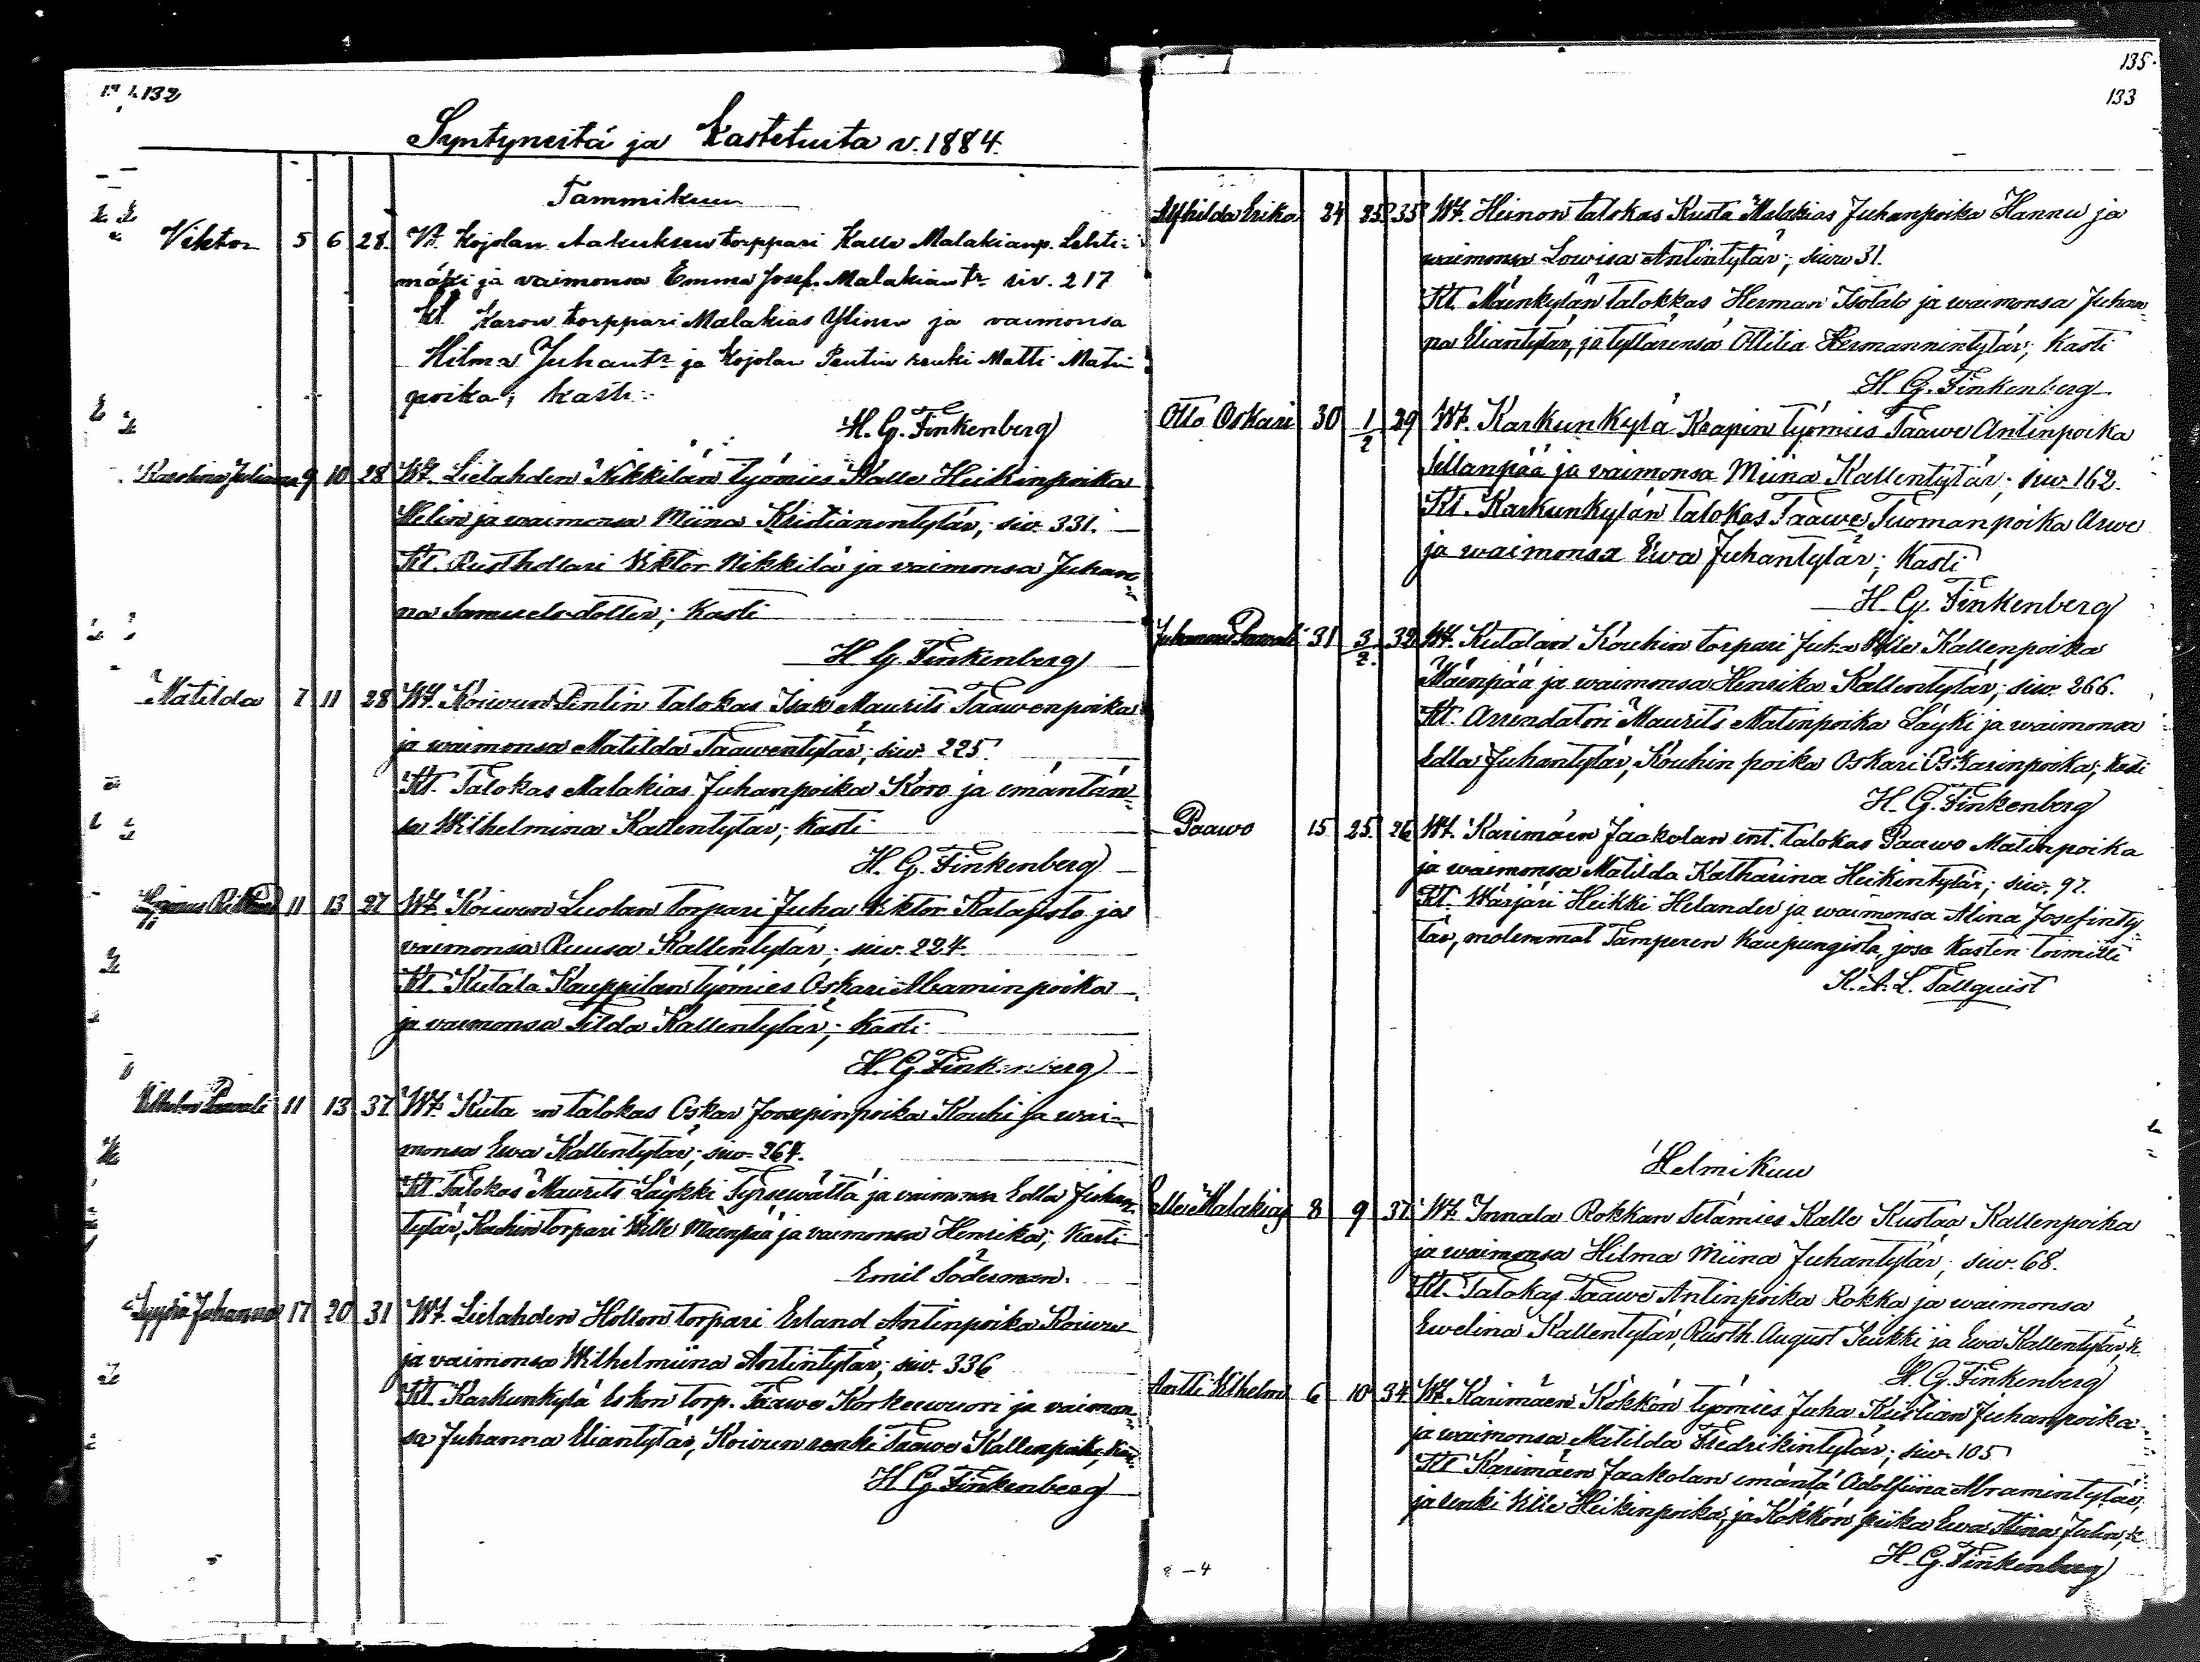 132
Syntyneitä ja Kastetuita v. 1884.
Tammikuu
Viktor 5 6 28. Vt. Kojolan Aakuksen torppari Kalle Malakianp. Lehti-
mäki ja vaimonsa Emma Josef. Malakiantr siv. 217
Kt Karon torppari Malakias Ylinen ja vaimonsa
Hilma Juhantr ja Kojolan Pentin renki Matti Matin
poika; kasti
H. G. Finkenberg
Karolina Juliana 9 10 28 Wt. Lielahden Nikkilän työmies Kalle Heikinpoika
Helin ja waimonsa Miina Kristianintytär; siw. 331.
Kt. Rusthollari Viktor Nikkilä ja vaimonsa Juhan-
na Samuelsdotter; Kasti
H G. Finkenberg
Matilda 7 11 28 Wt. Koiwun Pentin talokas Isak Maurits Taawenpoika
ja waimonsa Matilda Taawentytär; siw. 225.
Kt. Talokas Malakias Juhanpoika Koro ja emäntän-
sa Wilhelmina Kallentytär; Kasti
H. G. Finkenberg
11 13 27 Wt. Koiwun Luolan torpari Juha Viktor Katajisto ja
vaimonsa Ruusa Kallentytär; siw. 224.
Kt. Kutala Kauppilan työmies Oskari Abraminpoika
ja vaimonsa Tilda Kallentytär; Kasti
H. G. Finkenberg
Vilhelm Paavali 11 13 37 Wt. Kuta n talokas Oskar Joosepinpoika Kouhi ja wai-
monsa Ewa Kallentytär; siw. 264.
Kt Talokas Maurits Läykki Tyrsewältä ja vaimonsa Edla Juhan-
tytär, Kouhin torpari Wille Mäenpää ja vaimonsa Henrika; Kasti
Emil Söderman.
Johanna 17 20 31 Wt. Lielahden Hollon torpari Erland Antinpoika Koiwu
ja vaimonsa Wilhelmiina Antintytär; siw. 336
Kt. Karkunkylä Eskon torp. Taawe Korkeewuori ja vaimon-
sa Juhanna Eliantytär, Koiwun renki Taawe Kallenpoika;
H G. Finkenberg
135.
133
Alfhilda Erika 24 25 35 Wt. Heinon talokas Kusta Malakias Juhanpoika Hannu ja
waimonsa Lowisa Antintytär; siwu 31.
Kt. Mäenkylän talokkas Herman Isotalo ja waimonsa Juhan-
na Eliantytär, ja tyttärensä Ottilia Hermannintytär; Kasti
H. G. Finkenberg
Otto Oskari 30 1/2 29 Wt. Karkunkylä Krapin työmies Taawe Antinpoika
Sillanpää ja vaimonsa Miina Kallentytär; siw. 162.
Kt. Karkunkylän talokas Taawe Tuomanpoika Arwe
ja waimonsa Ewa Juhantytär; Kasti
H. G. Finkenberg
Juhannes Paawali 31 3/2. 32 Wt. Kutalan Kouhin torpari Juha Wille Kallenpoika
Mäenpää ja waimonsa Henrika Kallentytär; siw. 266.
Kt. Arrendatori Maurits Matinpoika Läyki ja waimonsa
Edla Juhantytär, Kouhin poika Oskari Oskarinpoika; Kasti
H. G. Finkenberg
Paawo 15 25. 26 Wt. Karimäen Jaakolan ent. talokas Paawo Matinpoika
ja waimonsa Matilda Katharina Heikintytär; siw. 97.
Kt. Wärjäri Heikki Helander ja waimonsa Alina Josefinty
tär, molemmat Tampereen Kaupungista, josa Kasten toimitti
K. A. L. Tallquist
Helmikuu
Kalle Malakias 8 9 37 Wt. Innala Rokkan Itsämies Kalle Kustaa Kallenpoika
ja waimonsa Hilma Miina Juhantytär; siw. 68.
Kt. Talokas Taawe Antinpoika Rokka ja waimonsa
Ewelina Kallentytär, Rusth. August Seukki ja Ewa Kallentytär; k.
H. G. Finkenberg
Antti Vilhelm 6 10 34 Wt. Karimäen Kökkön työmies Juha Kustian Juhanpoika
ja waimonsa Matilda Fredrikintytär; siw. 105
Kt Karimäen Jaakolan emäntä Adolfiina Abramintytär,
ja renki Ville Heikinpoika, ja Kökkön piika Ewa Stina Julin; k.
H. G. Finkenberg